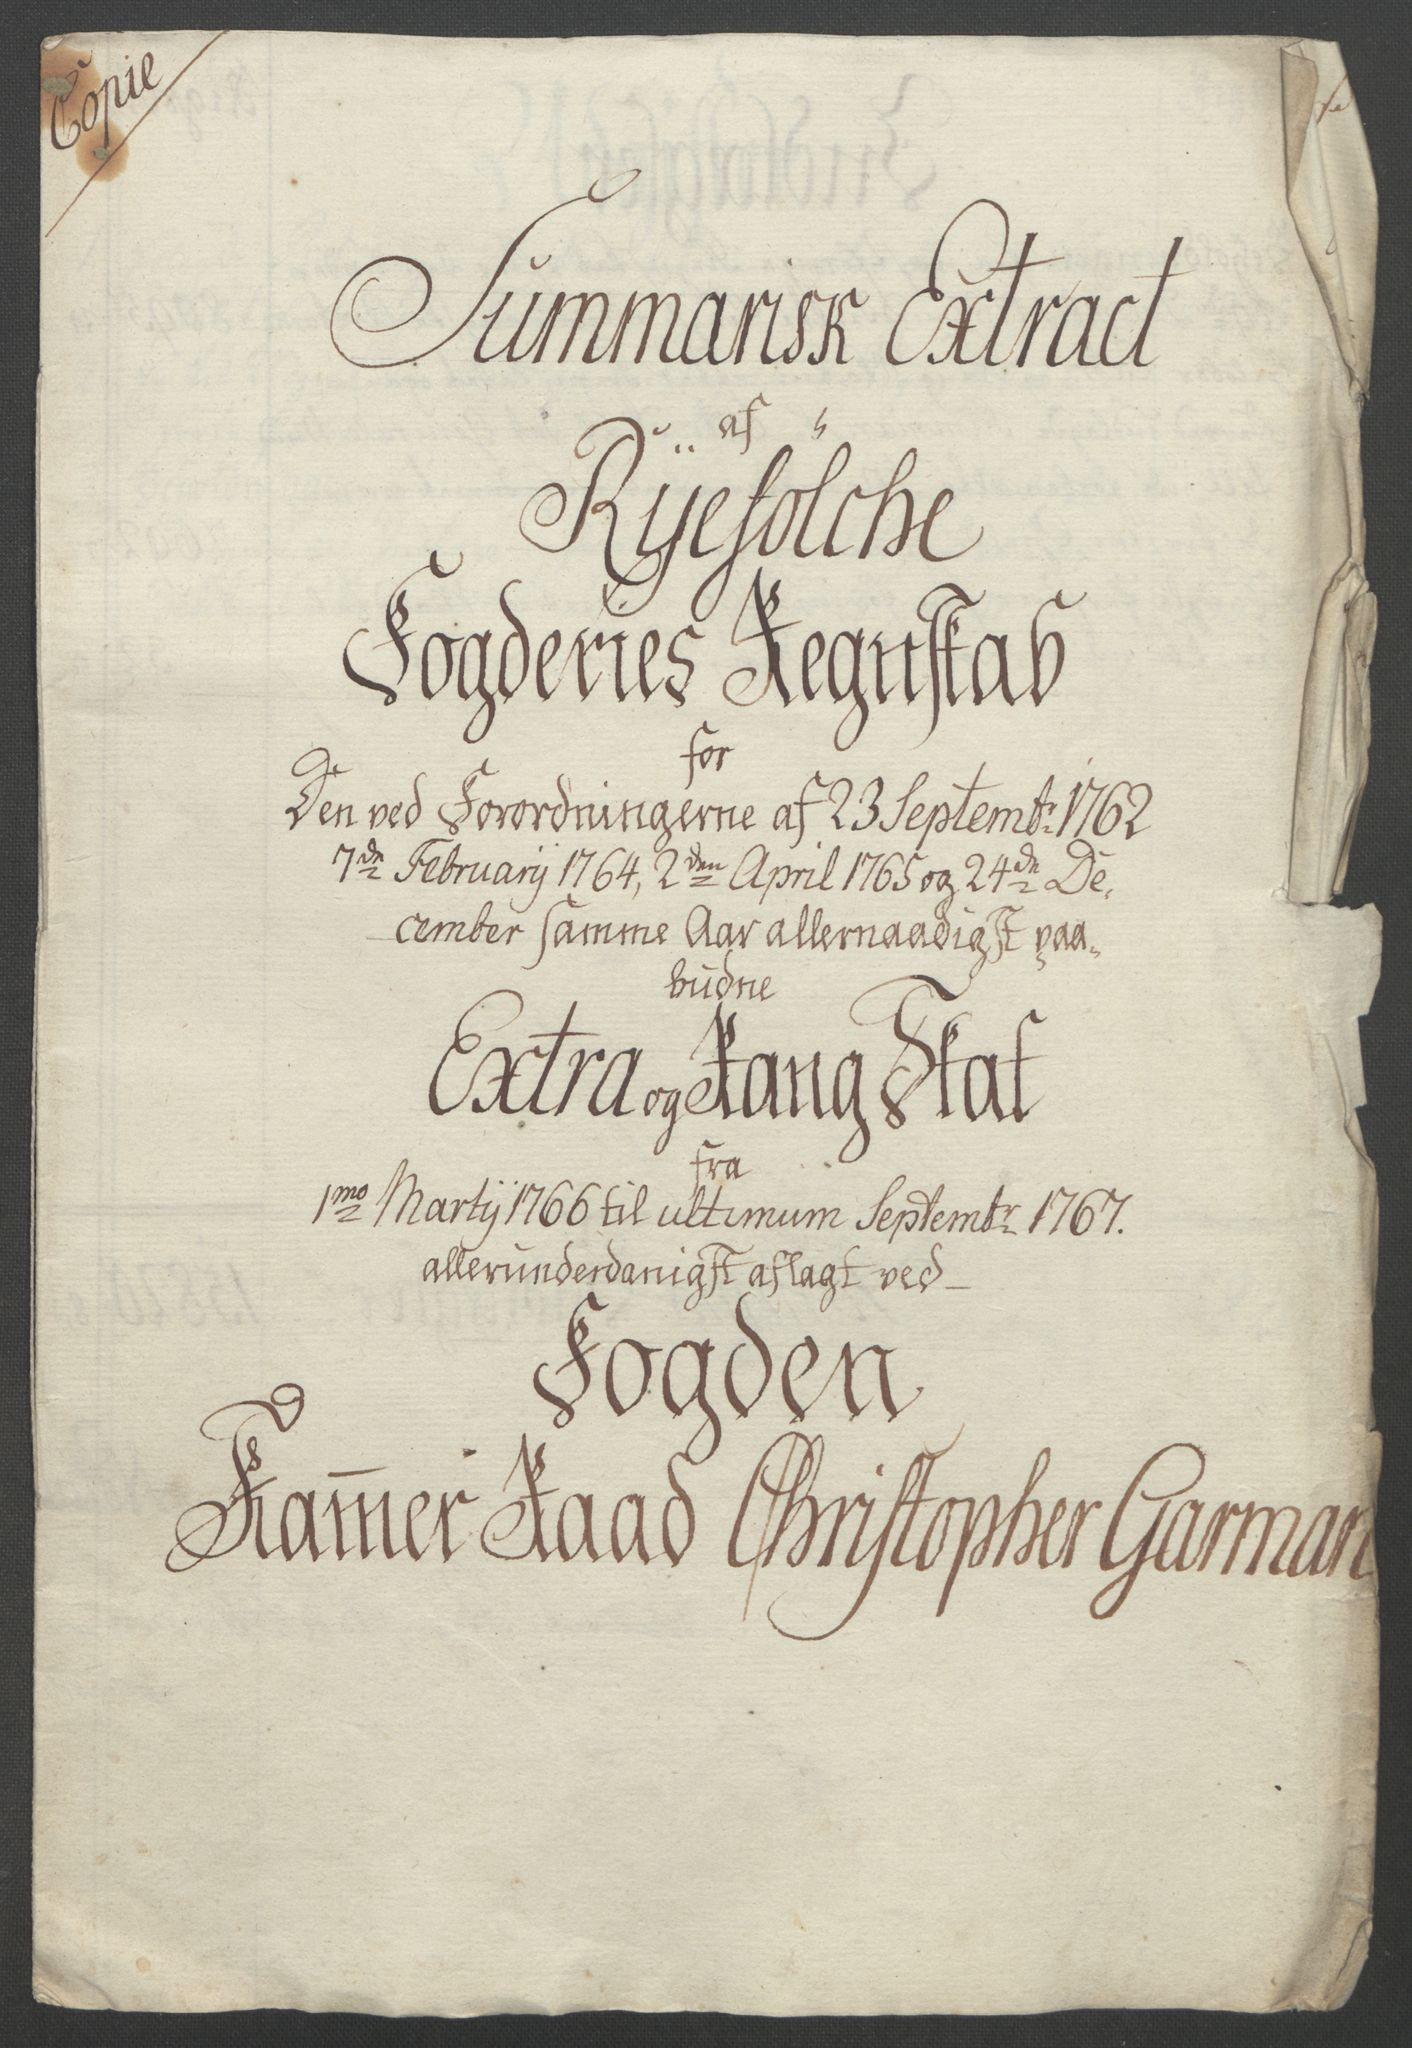 Copie
Summarisk Extract
af
Rÿefölche
Fogderies Regnskab
for
Den ved Forordningerne af 23 Septembr: 1762
7de February 1764, 2den April 1765 og 24de De-
cember samme Aar allernaadigst paa-
budne
Extra og Rang Skat
fra
1mo Martij 1766 til ultimum Septembr 1767.
allerunderdanigst aflagt ved
Fogden
Kam̅er Raad Christopher Garman